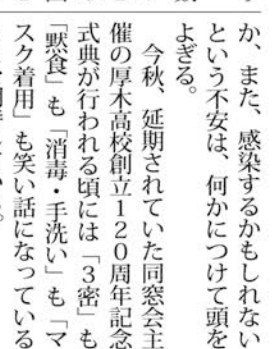 か、また、感染するかもしれない
という不安は、何かにつけて頭を
よぎる。
今秋、延期されていた同窓会主
催の厚木高校創立120周年記念
式典が行われる頃には「3密」も
「黙食」も「消毒・手洗い」も「マ
スク着用」も笑い話になっている